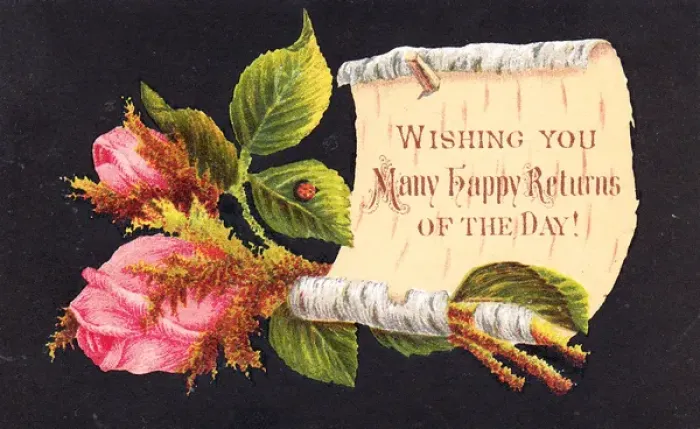 WISHING YOU
Many Happy Returns
OF THE DAY!